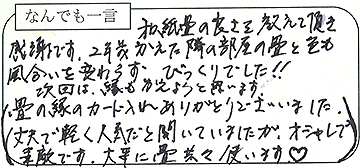 なんでも一言
和紙畳の良さを教えて頂き
感謝です。2年前かえた隣の部屋の畳と色も
風合いも変わらず、びっくりでした!!
次回は、縁もかえようと思います。
畳の縁のカード入れありがとうございました
丈夫で軽く人気だと聞いていましたが、オシャレで
素敵です。大事に畳共々使います♡